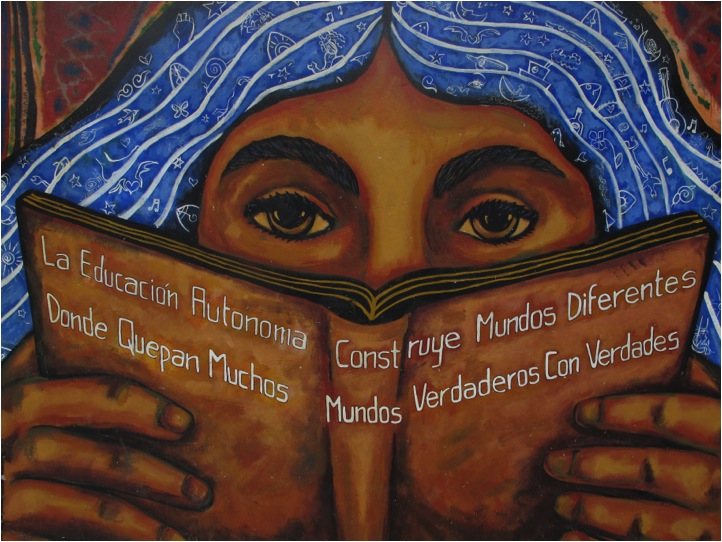 La Educación Autonoma Construye Mundos Diferentes
Donde Quepan Muchos Mundos Verdaderos Con Verdades